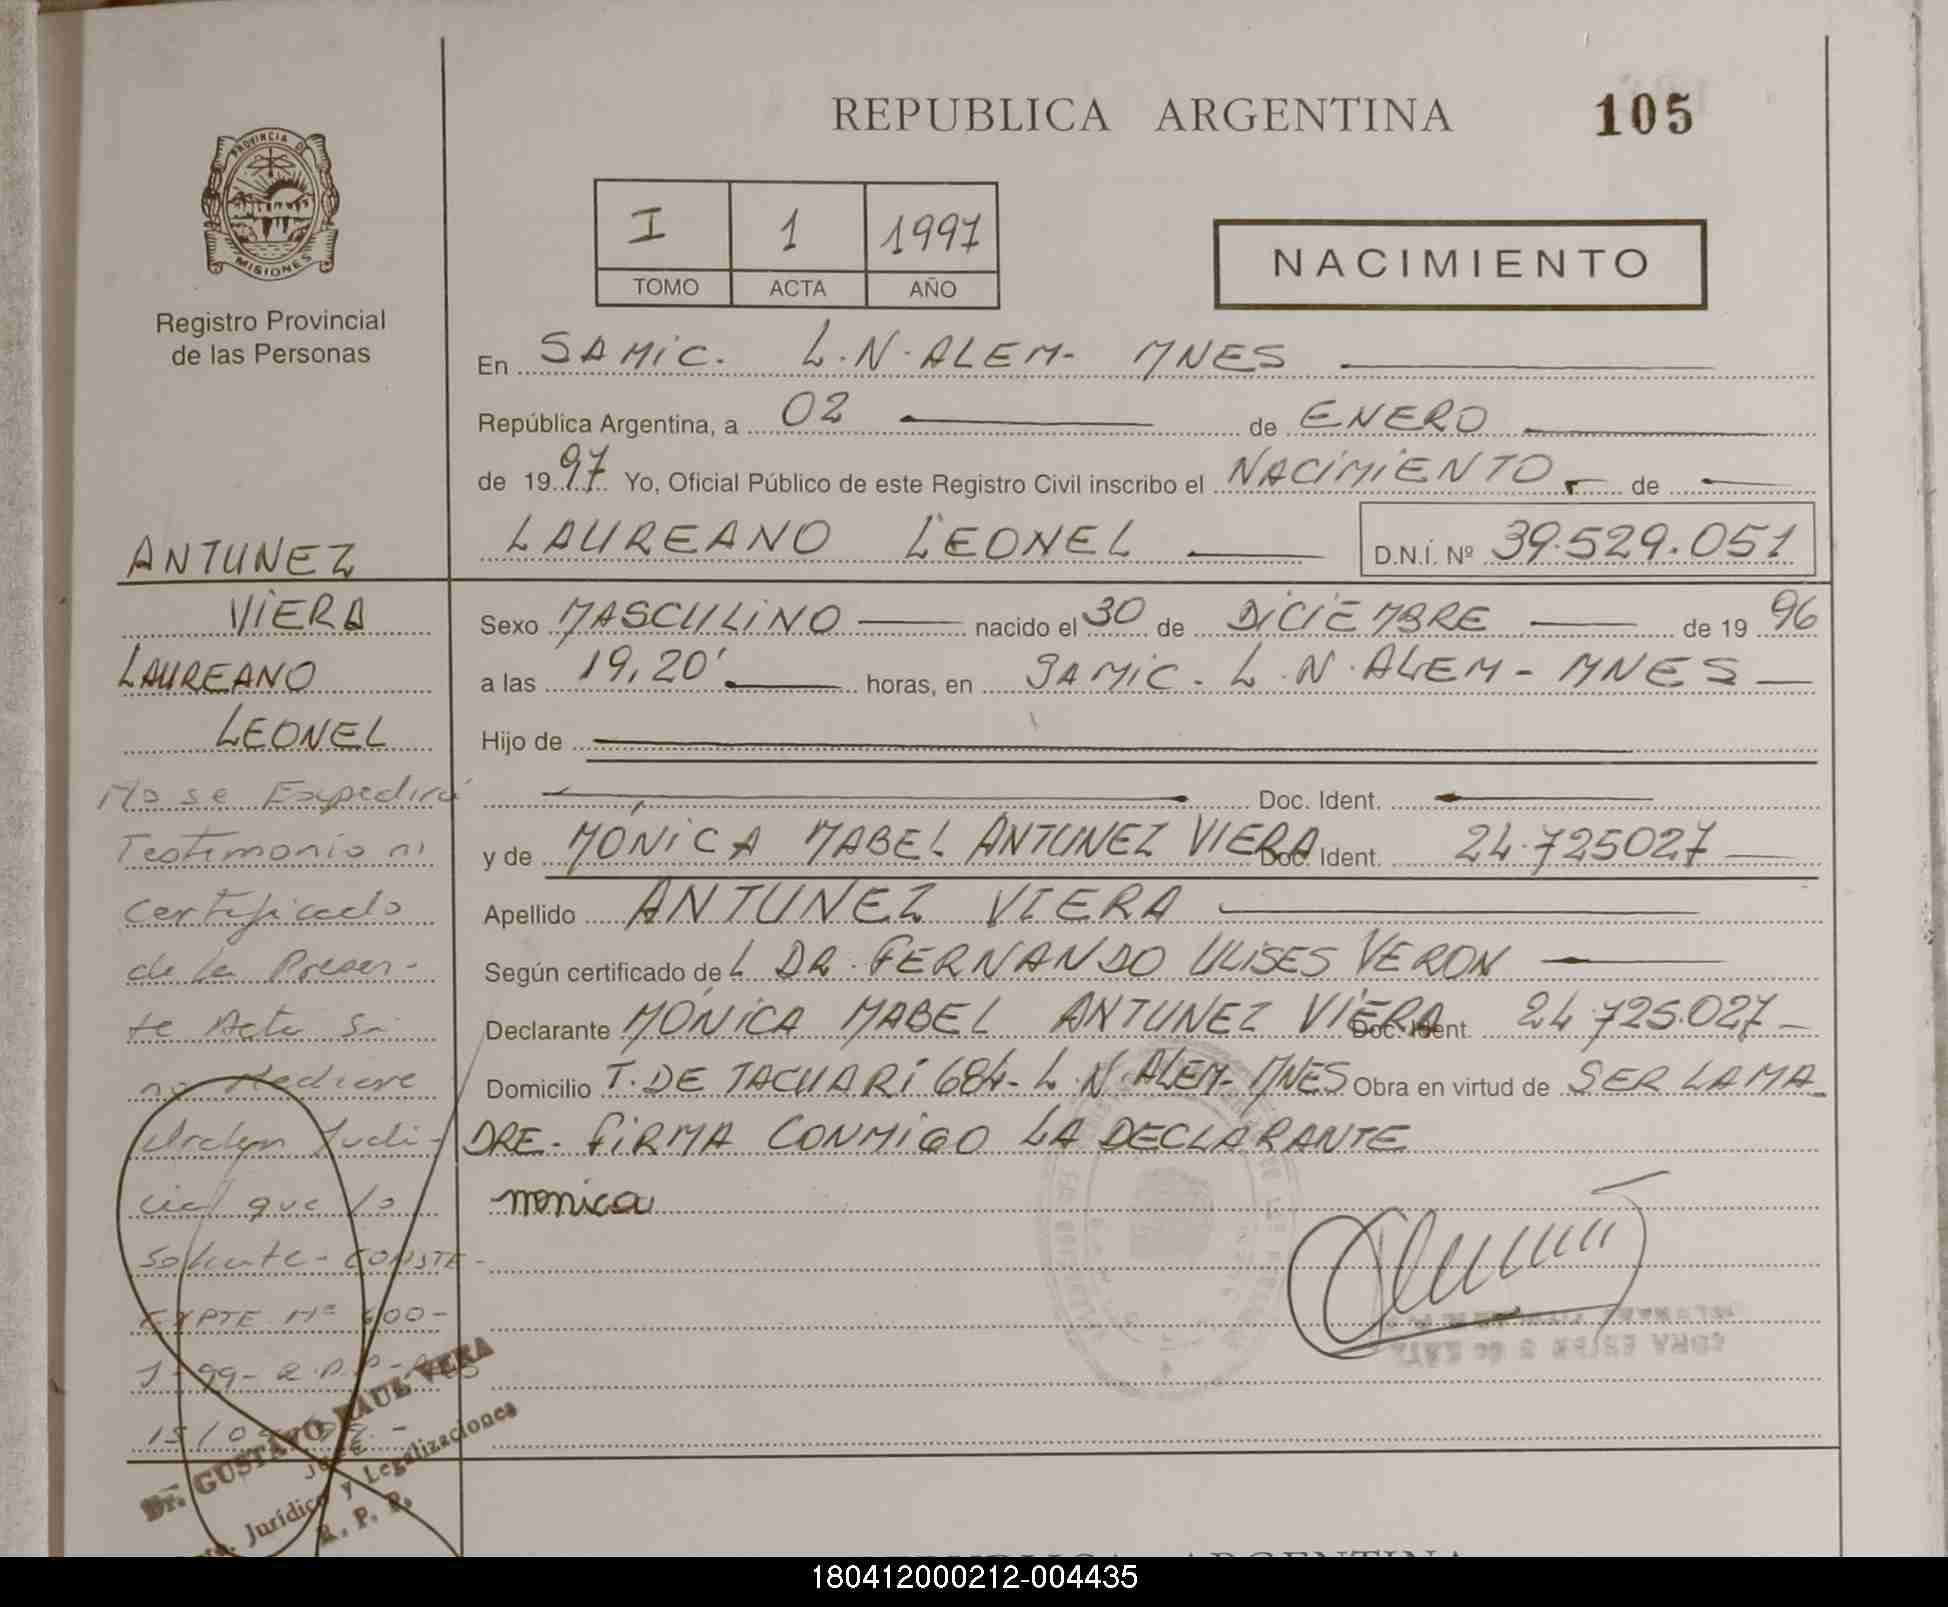 REPUBLICA ARGENTINA
105
PROVINCIA DE
MISIONES
Registro Provincial
de las Personas
I 1 1997
TOMO ACTA AÑO
NACIMIENTO
En SAMIC. L.N.ALEM- MNES
República Argentina, a 02 de ENERO
de 1997 Yo, Oficial Público de este Registro Civil inscribo el NACIMIENTO de
LAUREANO LEONEL D.N.I. Nº 39.529.051
ANTUNEZ
VIERA
LAUREANO
LEONEL
Sexo MASCULINO nacido el 30 de DICIEMBRE de 1996
a las 19,20' horas, en SAMIC. L.N.ALEM - MNES
Hijo de
Doc. Ident.
y de MÓNICA MABEL ANTUNEZ VIERA Doc. Ident. 24.725027
Apellido ANTUNEZ VIERA
Según certificado del DR. FERNANDO ULISES VERON
Declarante MÓNICA MABEL ANTUNEZ VIERA Doc. Ident. 24.725.027
Domicilio T. DE TACUARI 684- L.N.ALEM- MNES Obra en virtud de SER LA MA-
DRE- FIRMA CONMIGO LA DECLARANTE
monica
No se Expedirá
Testimonio ni
certificado
de la Presen-
te Acta Si
no Mediare
Orden Judi-
cial que lo
Solicite- CONSTE-
EXPTE Nº 600-
Dr. GUSTAVO RAUL VERA
Jurídico y Legalizaciones
R. P. P.
REPUBLICA ARGENTINA
180412000212-004435